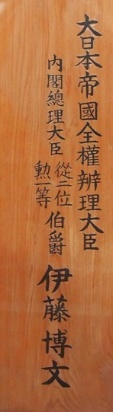 大日本帝國全權辨理大臣
內閣總理大臣從二位勲一等伯爵伊藤博文